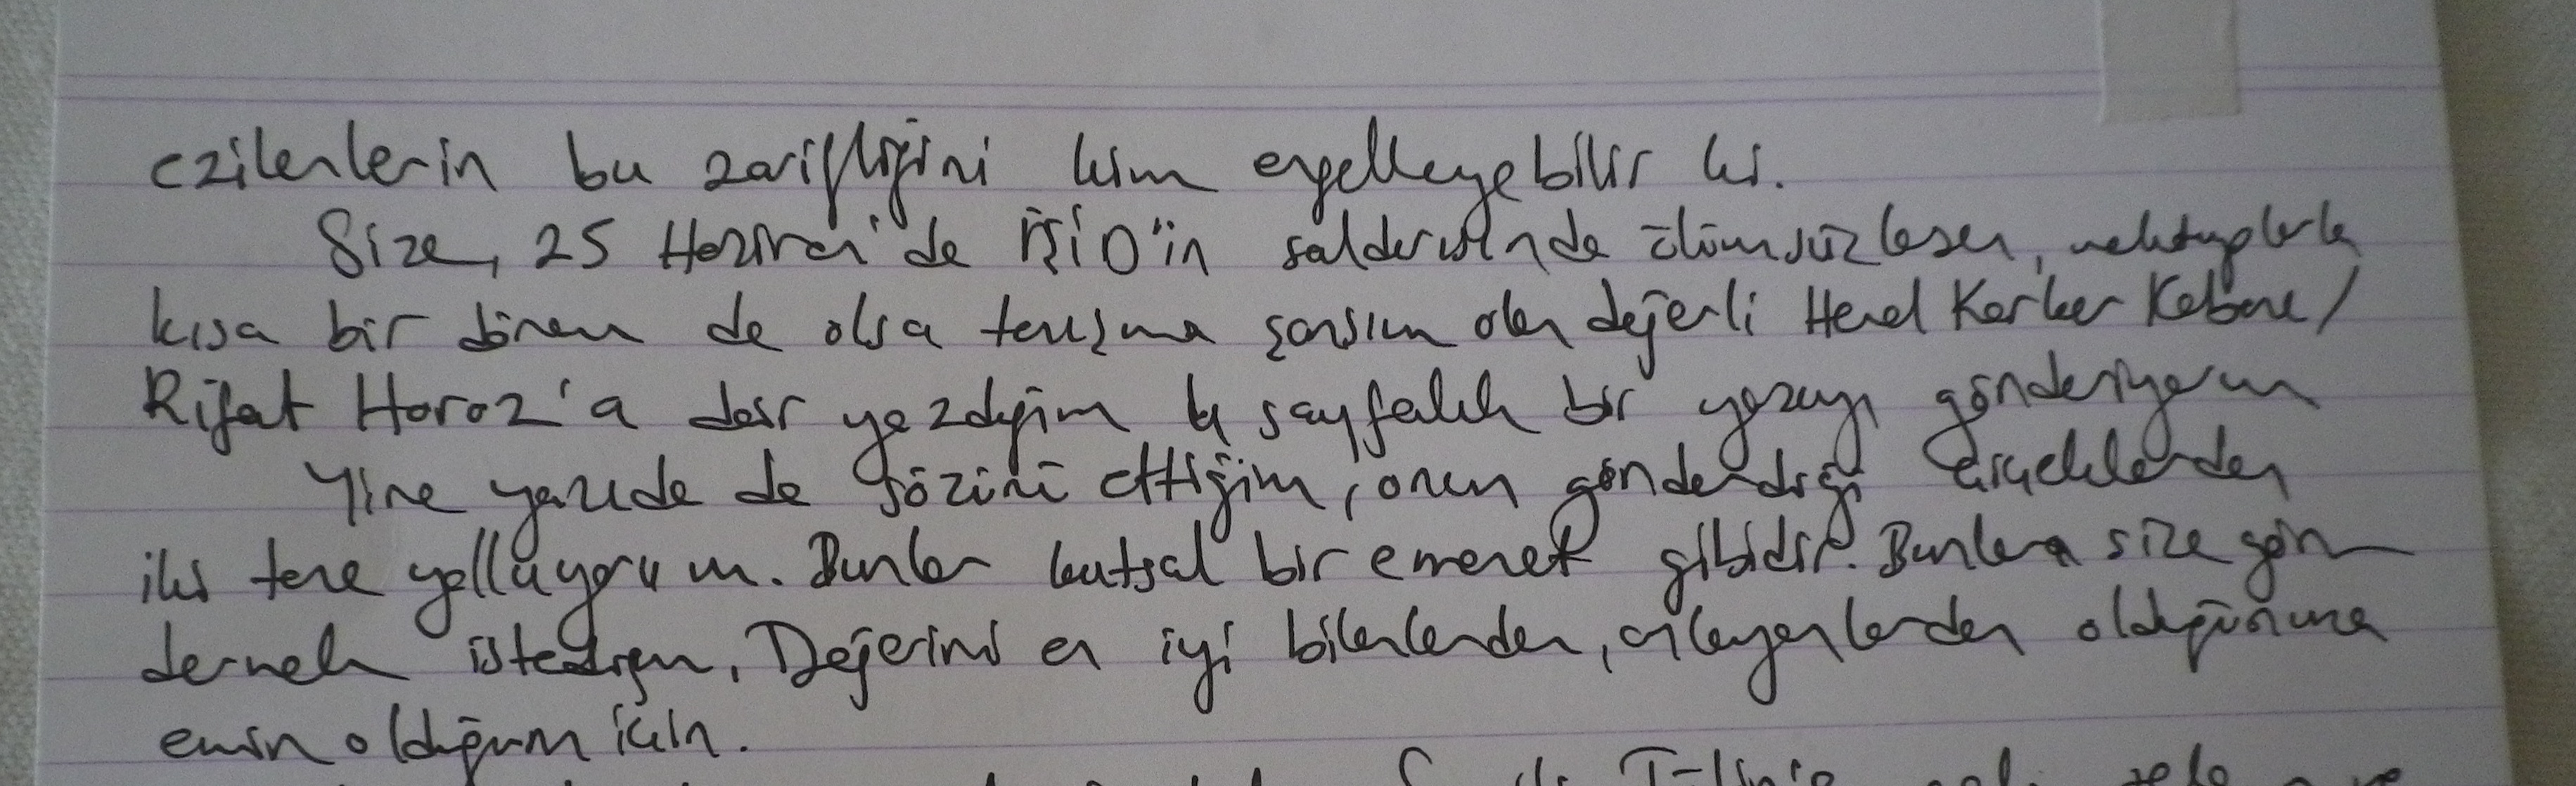 ezilenlerin bu zarifliğini kim engelleyebilir ki.
Size, 25 Haziran'de IŞİD'in saldırısında ölümsüzleşen, mektuplarla
kısa bir dönem de olsa tanışma şansım olan değerli Heval Karker Kobane/
Rifat Horoz'a dair yazdığım 4 sayfalık bir yazıyı gönderiyorum
Yine yazıda da sözünü ettiğim, onun gönderdiği çiçeklerden
iki tane yolluyorum. Bunlar kutsal bir emanet gibidir. Bunları size gön
dermek istedim. Değerini en iyi bilenlerden, anlayanlardan olduğunuza
emin olduğum için.